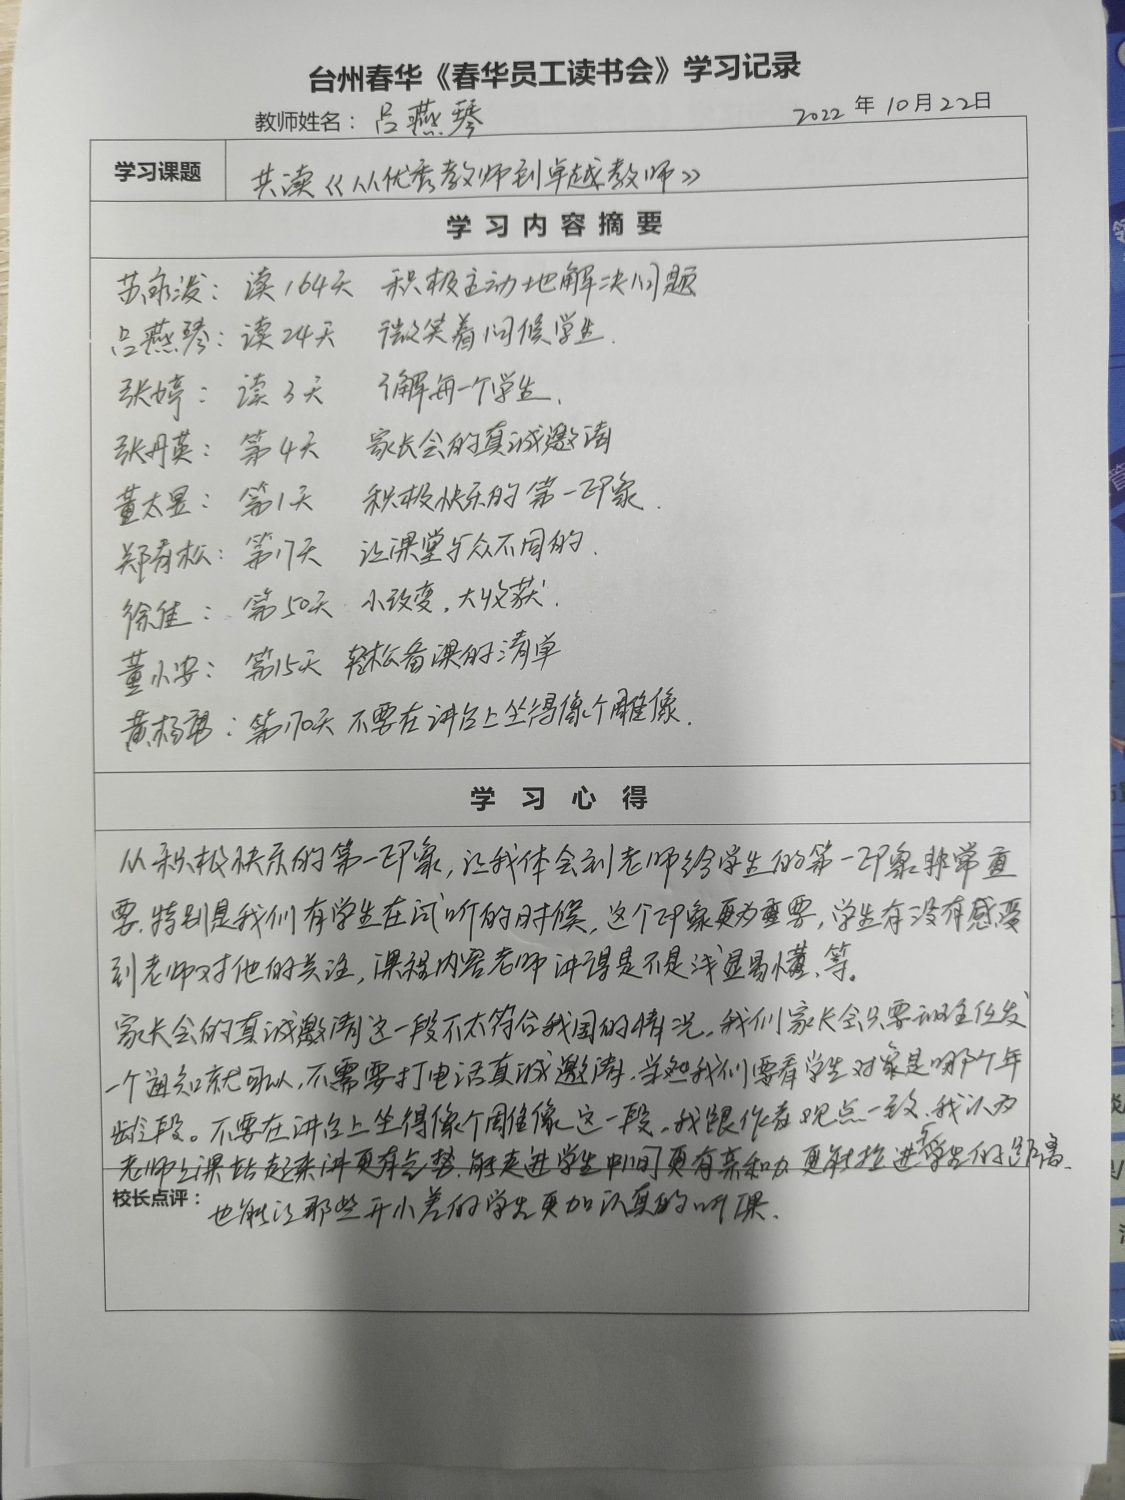 台州春华《春华员工读书会》学习记录
教师姓名：吕燕琴 2022年10月22日
学习课题 共读《从优秀教师到卓越教师》
学习内容摘要
苏：读164天 积极主动地解决问题
吕燕琴：读24天 微笑着问候学生.
张婷：读3天 了解每一个学生.
张丹英：第4天 家长会的真诚邀请
董太昱：第1天 积极快乐的第一印象.
郑有松：第17天 让课堂与众不同的.
徐佳：第50天 小改变，大收获.
董小安：第15天 轻松备课的清单
黄杨勇：第170天 不要在讲台上坐得像个雕像.
学习心得
从积极快乐的第一印象，让我体会到老师给学生的第一印象非常重
要.特别是我们有学生在试听的时候，这个印象更为重要，学生有没有感受
到老师对他的关注，课程内容老师讲得是不是浅显易懂、等。
家长会的真诚邀请这一段不太符合我国的情况，我们家长会只要班主任发
一个通知就可以，不需要打电话真诚邀请.当然我们要看学生对象是哪个年
龄段。不要在讲台上坐得像个雕像这一段，我跟作者观点一致.我认为
老师上课站起来讲更有气势.能走进学生中间更有亲和力更能拉进学生的距离.
校长点评：
也能让那些开小差的学生更加认真的听课.